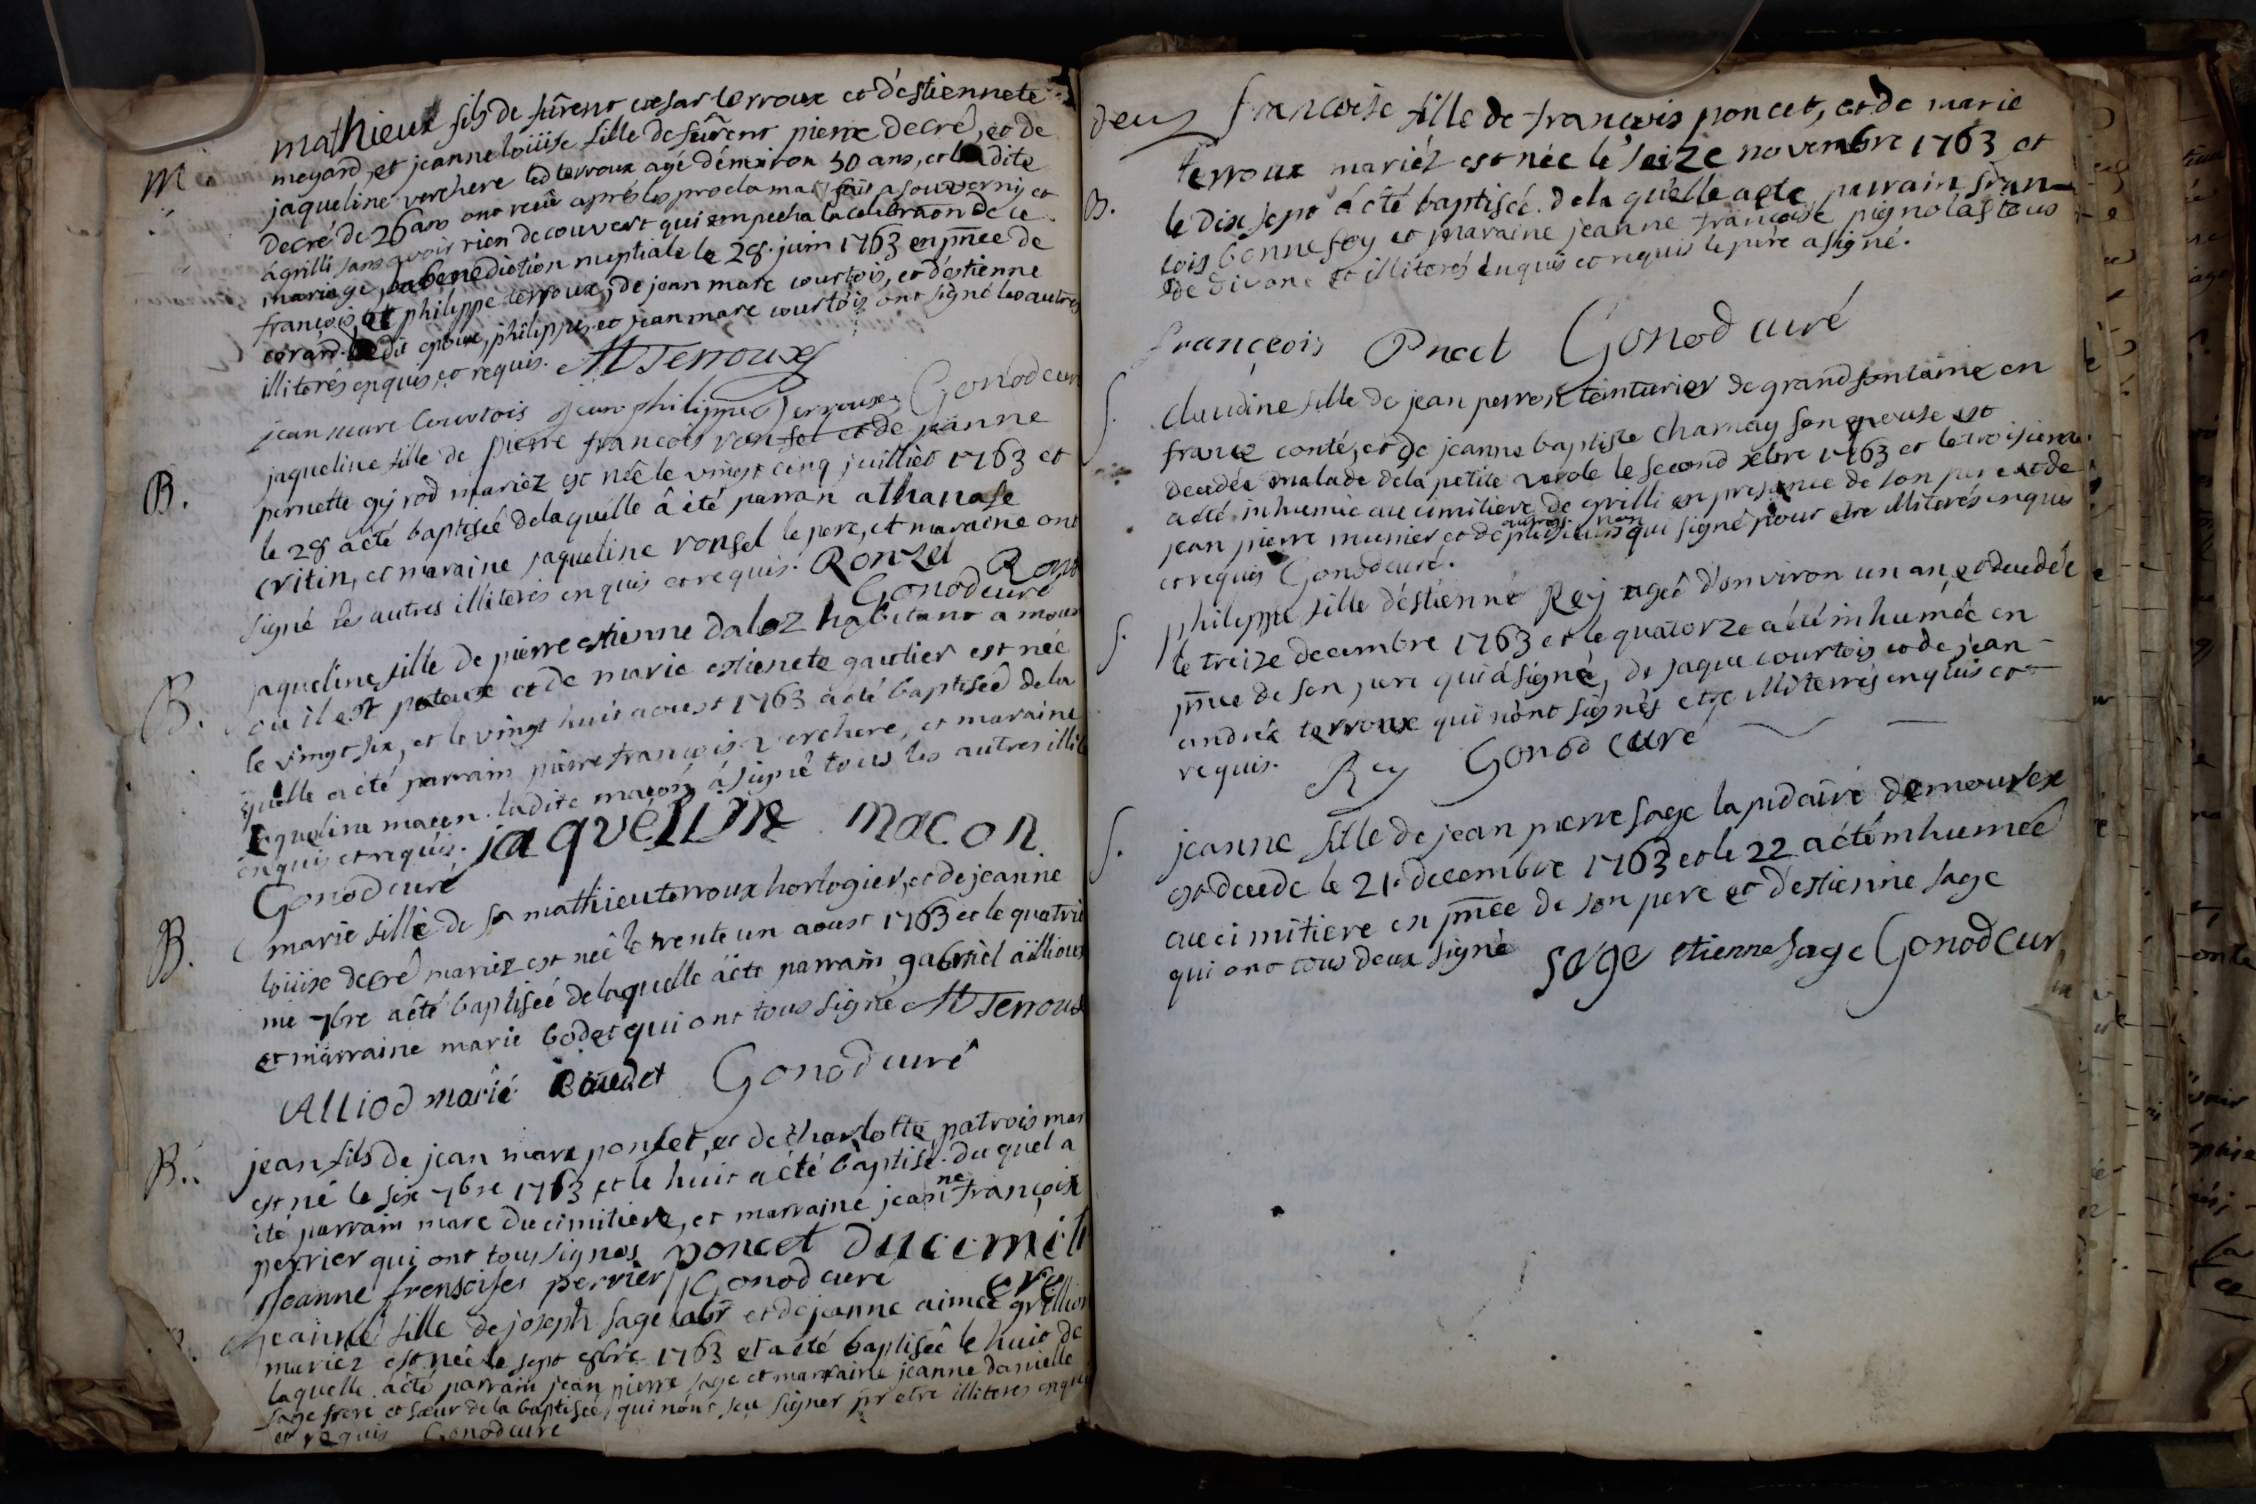 mathieux fils de fûrent cesar terroux et d'estiennete
M. meyard, et jeanne loüise fille de feûrent pierre decré, et de
jaqueline verchere led terroux agé d'environ 30 ans, et la dite
decré de 26 ans ont reçû après les proclamas fais a sauverny et
a grilli sans avoir rien decouvert qui empecha la celebraon de ce
mariage, la benediction nuptiale le 28. juin 1763 en pñce de
françois, et philippe terroux, de jean marc courtois, et d'estienne
corand. le dit epoux, philippe, et jean marc courtois ont signé les autres
illiterés enquis, et requis. M Terroux
jean marc Courtois jean philippe Terroux Gonod cure
jaqueline fille de pierre francois ronsel et de jeanne
B. pernette gyrod mariez est née le vingt cinq juilliet 1763 et
le 28 a eté baptiseé de laquelle â été parran athanase
critin, et maraine jaqueline ronsel le pere, et maraine ont
signé les autres illiteres enquis et requis. Ronzel Ron
Gonod curé
jaqueline fille de pierre estienne daloz habitant a mour
B. ou il est pataux et de marie estienete gautier est née
le vingt six, et le vingt huit aoust 1763 a eté baptiseé de la
quelle a eté parrain pierre francois verchere, et maraine
jaqueline macon. ladite macon a signé tous les autres illit
enquis et requis. jaqueline macon.
Gonod curé
B. marie fille de sr mathieu terroux horlogier, et de jeanne
loüise decré mariez est née le trente un aoust 1763 et le quatrie
me 7bre a été baptiseé de laquelle a eté parrain gabriel aillioux
et marraine marie bodet qui ont tous signé M Terroux
Alliod marie Boudet Gonod curé
B. jean fils de jean marc ponset, et de charlotte patrois mar
est né le six 7bre 1763 et le huit a eté baptisé. du quel a
été parrain marc du cimitiere, et marraine jeanne françoise
perrier qui ont tous signés poncet ducimiti
Jeanne frensoises perrier Gonod curé ere
jeanne fille de joseph sage labr et de jeanne aimeé grillion
mariez est née le sept 8bre 1763 et a été baptiseé le huit de
laquelle a été parrain jean pierre sage et marraine jeanne danielle
sage frere et sœur de la baptiseé, qui n'ont sçu signer pr etre illiteres enquis
et requis Gonod curé
deux francoise fille de françois poncet, et de marie
terroux mariéz est née le seize novembre 1763 et
B. le dix sept a été baptisée. de la quelle a eté parrain fran-
cois bonnefoy et maraine jeanne francoise pignolas tous
de divone et illiterés enquis et requis le pére a signé.
françeois Pnset Gonod curé
S. claudine fille de jean perron teinturier de grand fontaine en
franc conté, et de jeanne baptiste charnay son epouse est
decedée malade de la petite verole le second xbre 1763 et le troisieme
a été inhumée au cimitiere de grilli en presance de son pere et de
jean pierre munier et de plusieurs autres qui non signé pour etre illiterés enquis
et requis Gonod curé.
S. philippe fille d'éstienne Rey ageé d'environ un an, est decedée
le treize decembre 1763 et le quatorze a été inhumée en
pñce de son pere qui a signé, de jaque courtois et de jean-
andré terroux qui n'ont signés etre illiterrés enquis et
requis. Rey Gonod Curé
S. jeanne fille de jean pierre sage lapidaire de mourex
est decede le 21. decembre 1763 et le 22 a été inhumeé
au cimitiere en pñce de son pere et d'estienne sage
qui ont tous deux signé sage etienne sage Gonod Cur